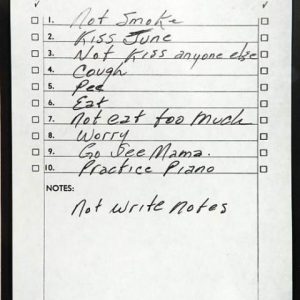 1. Not Smoke
2. Kiss June
3. Not Kiss anyone else
4. Cough
5. Pee
6. Eat
7. Not eat too much
8. Worry
9. Go See Mama.
10. Practice Piano
NOTES:
Not write notes